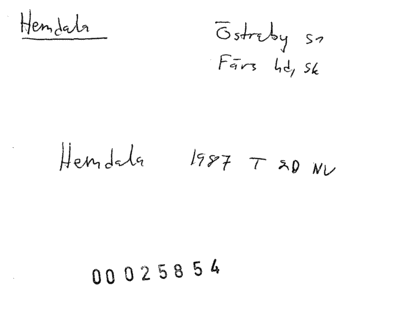 Hemdala
Östreby sn
Färs hd, Sk
Hemdala 1987 T 2D NV
00025854